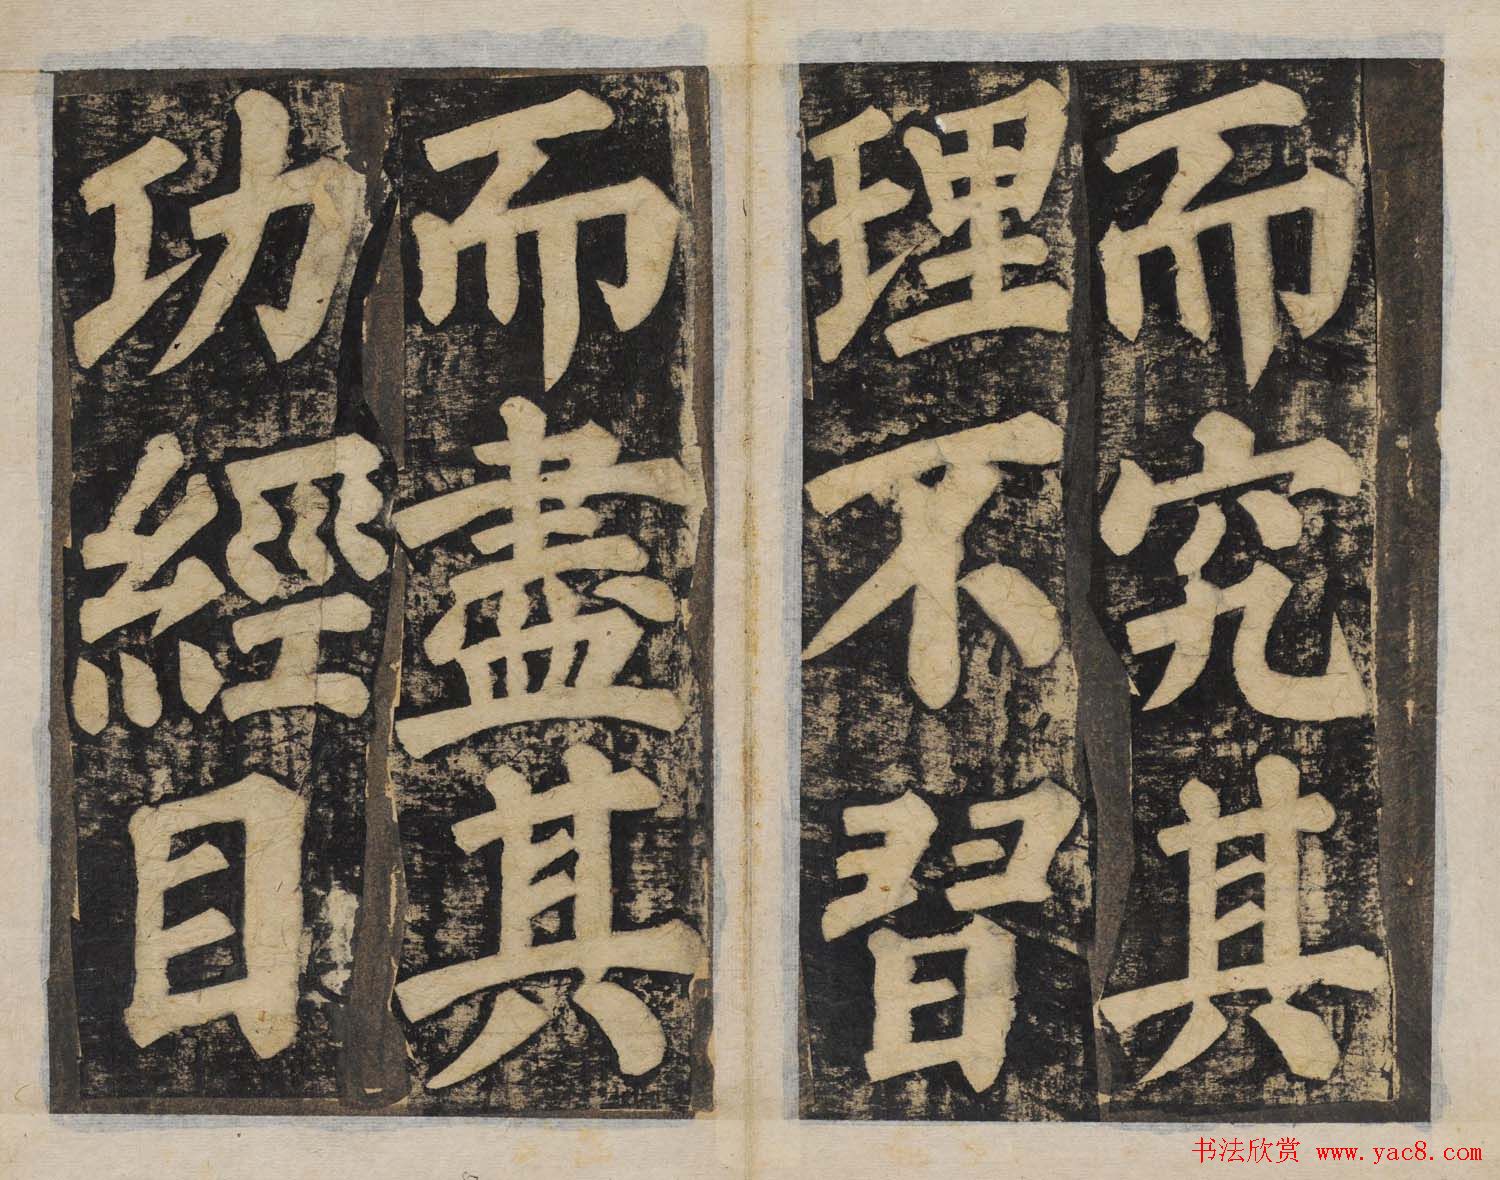 而究其
理不習
而盡其
功經目
书法欣赏 www.yac8.com